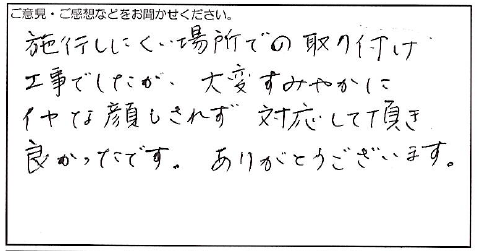 ご意見・ご感想などをお聞かせください。
施行しにくい場所での取り付け
工事でしたが、大変すみやかに
イヤな顔もされず対応して頂き
良かったです。ありがとうございます。